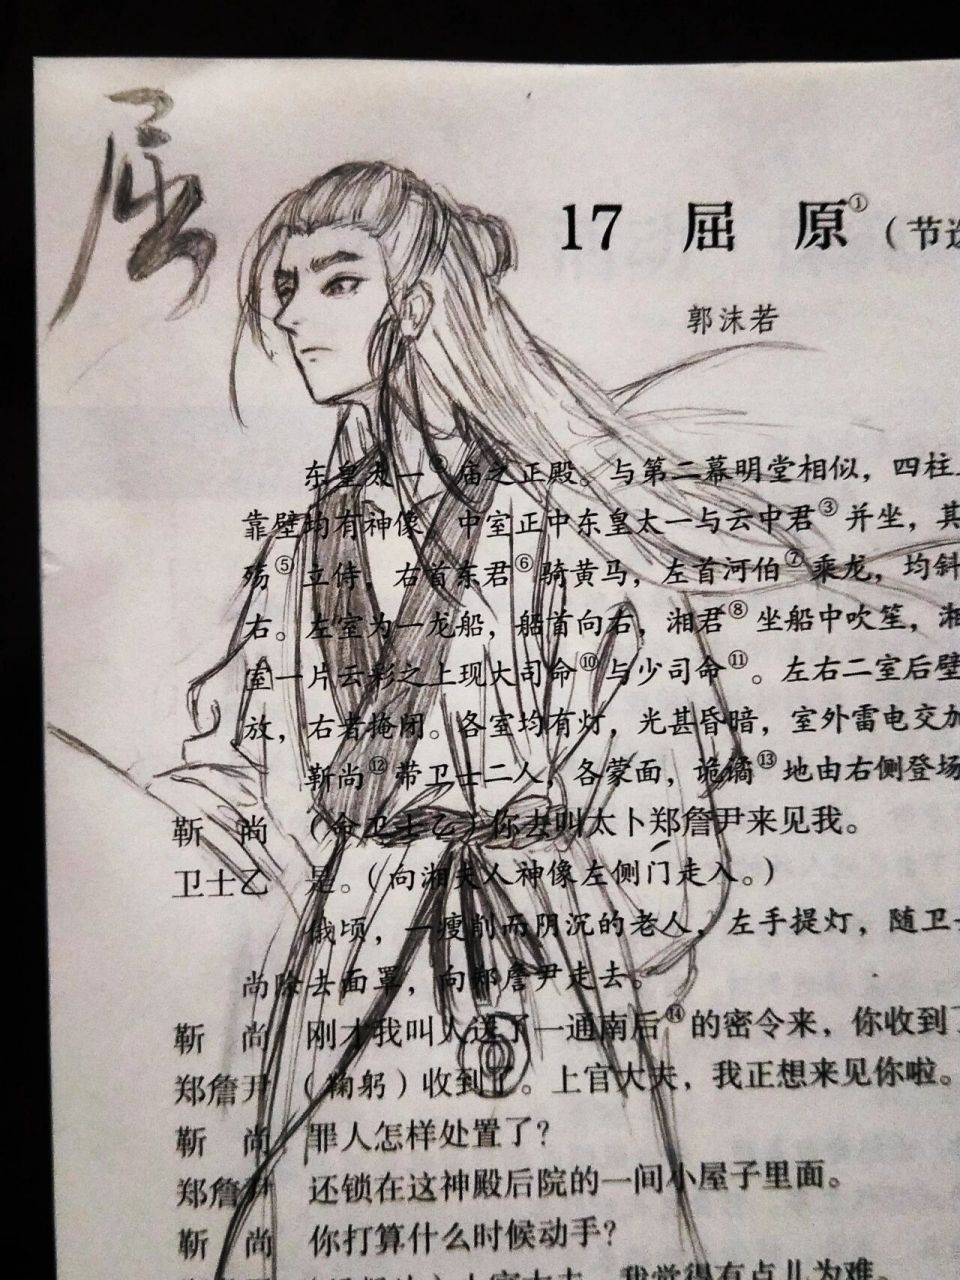 屈
17 屈 原①（节选
郭沫若
东皇太一②庙之正殿。与第二幕明堂相似，四柱
靠壁均有神像，中室正中东皇太一与云中君③并坐，其
殇⑤立侍，右首东君⑥骑黄马，左首河伯⑦乘龙，均斜
右。左室为一龙船，船首向右，湘君⑧坐船中吹笙，湘
室一片云彩之上现大司命⑩与少司命⑪。左右二室后壁
放，右者掩闭。各室均有灯，光甚昏暗，室外雷电交加
靳尚⑫带卫士二人，各蒙面，诡谲⑬地由右侧登场
靳 尚 （命卫士乙）你去叫太卜郑詹尹来见我。
卫士乙 是。（向湘夫人神像左侧门走入。）
俄顷，一瘦削而阴沉的老人，左手提灯，随卫士
尚除去面罩，向郑詹尹走去。
靳 尚 刚才我叫人送了一通南后⑭的密令来，你收到了
郑詹尹 （鞠躬）收到了。上官大夫，我正想来见你啦。
靳 尚 罪人怎样处置了？
郑詹尹 还锁在这神殿后院的一间小屋子里面。
靳 尚 你打算什么时候动手？
上官大夫，我觉得有点儿为难。